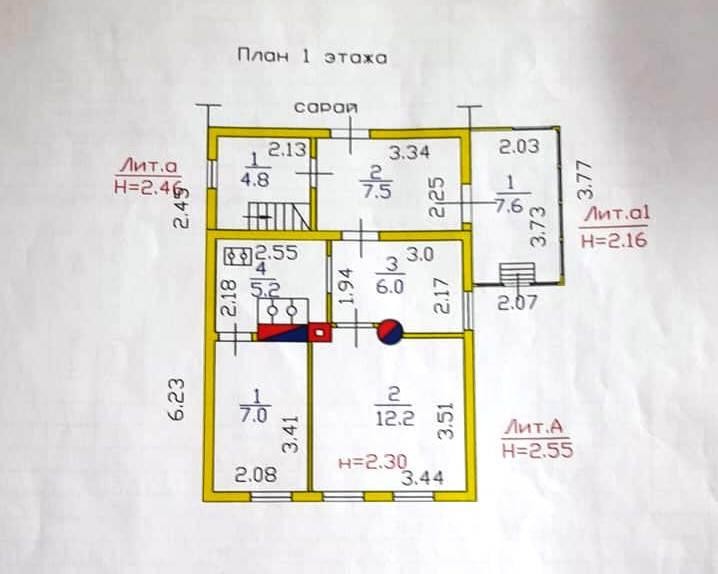 План 1 этажа
сарай
Лит.а
Н=2.46
2.45
1
4.8
2.13
2
7.5
3.34
2.25
1
7.6
2.03
3.73
3.77
Лит.а1
Н=2.16
2.07
2.55
4
5.2
2.18
3
6.0
3.0
1.94
2.17
6.23
1
7.0
3.41
2.08
2
12.2
3.51
н=2.30
3.44
Лит.А
Н=2.55